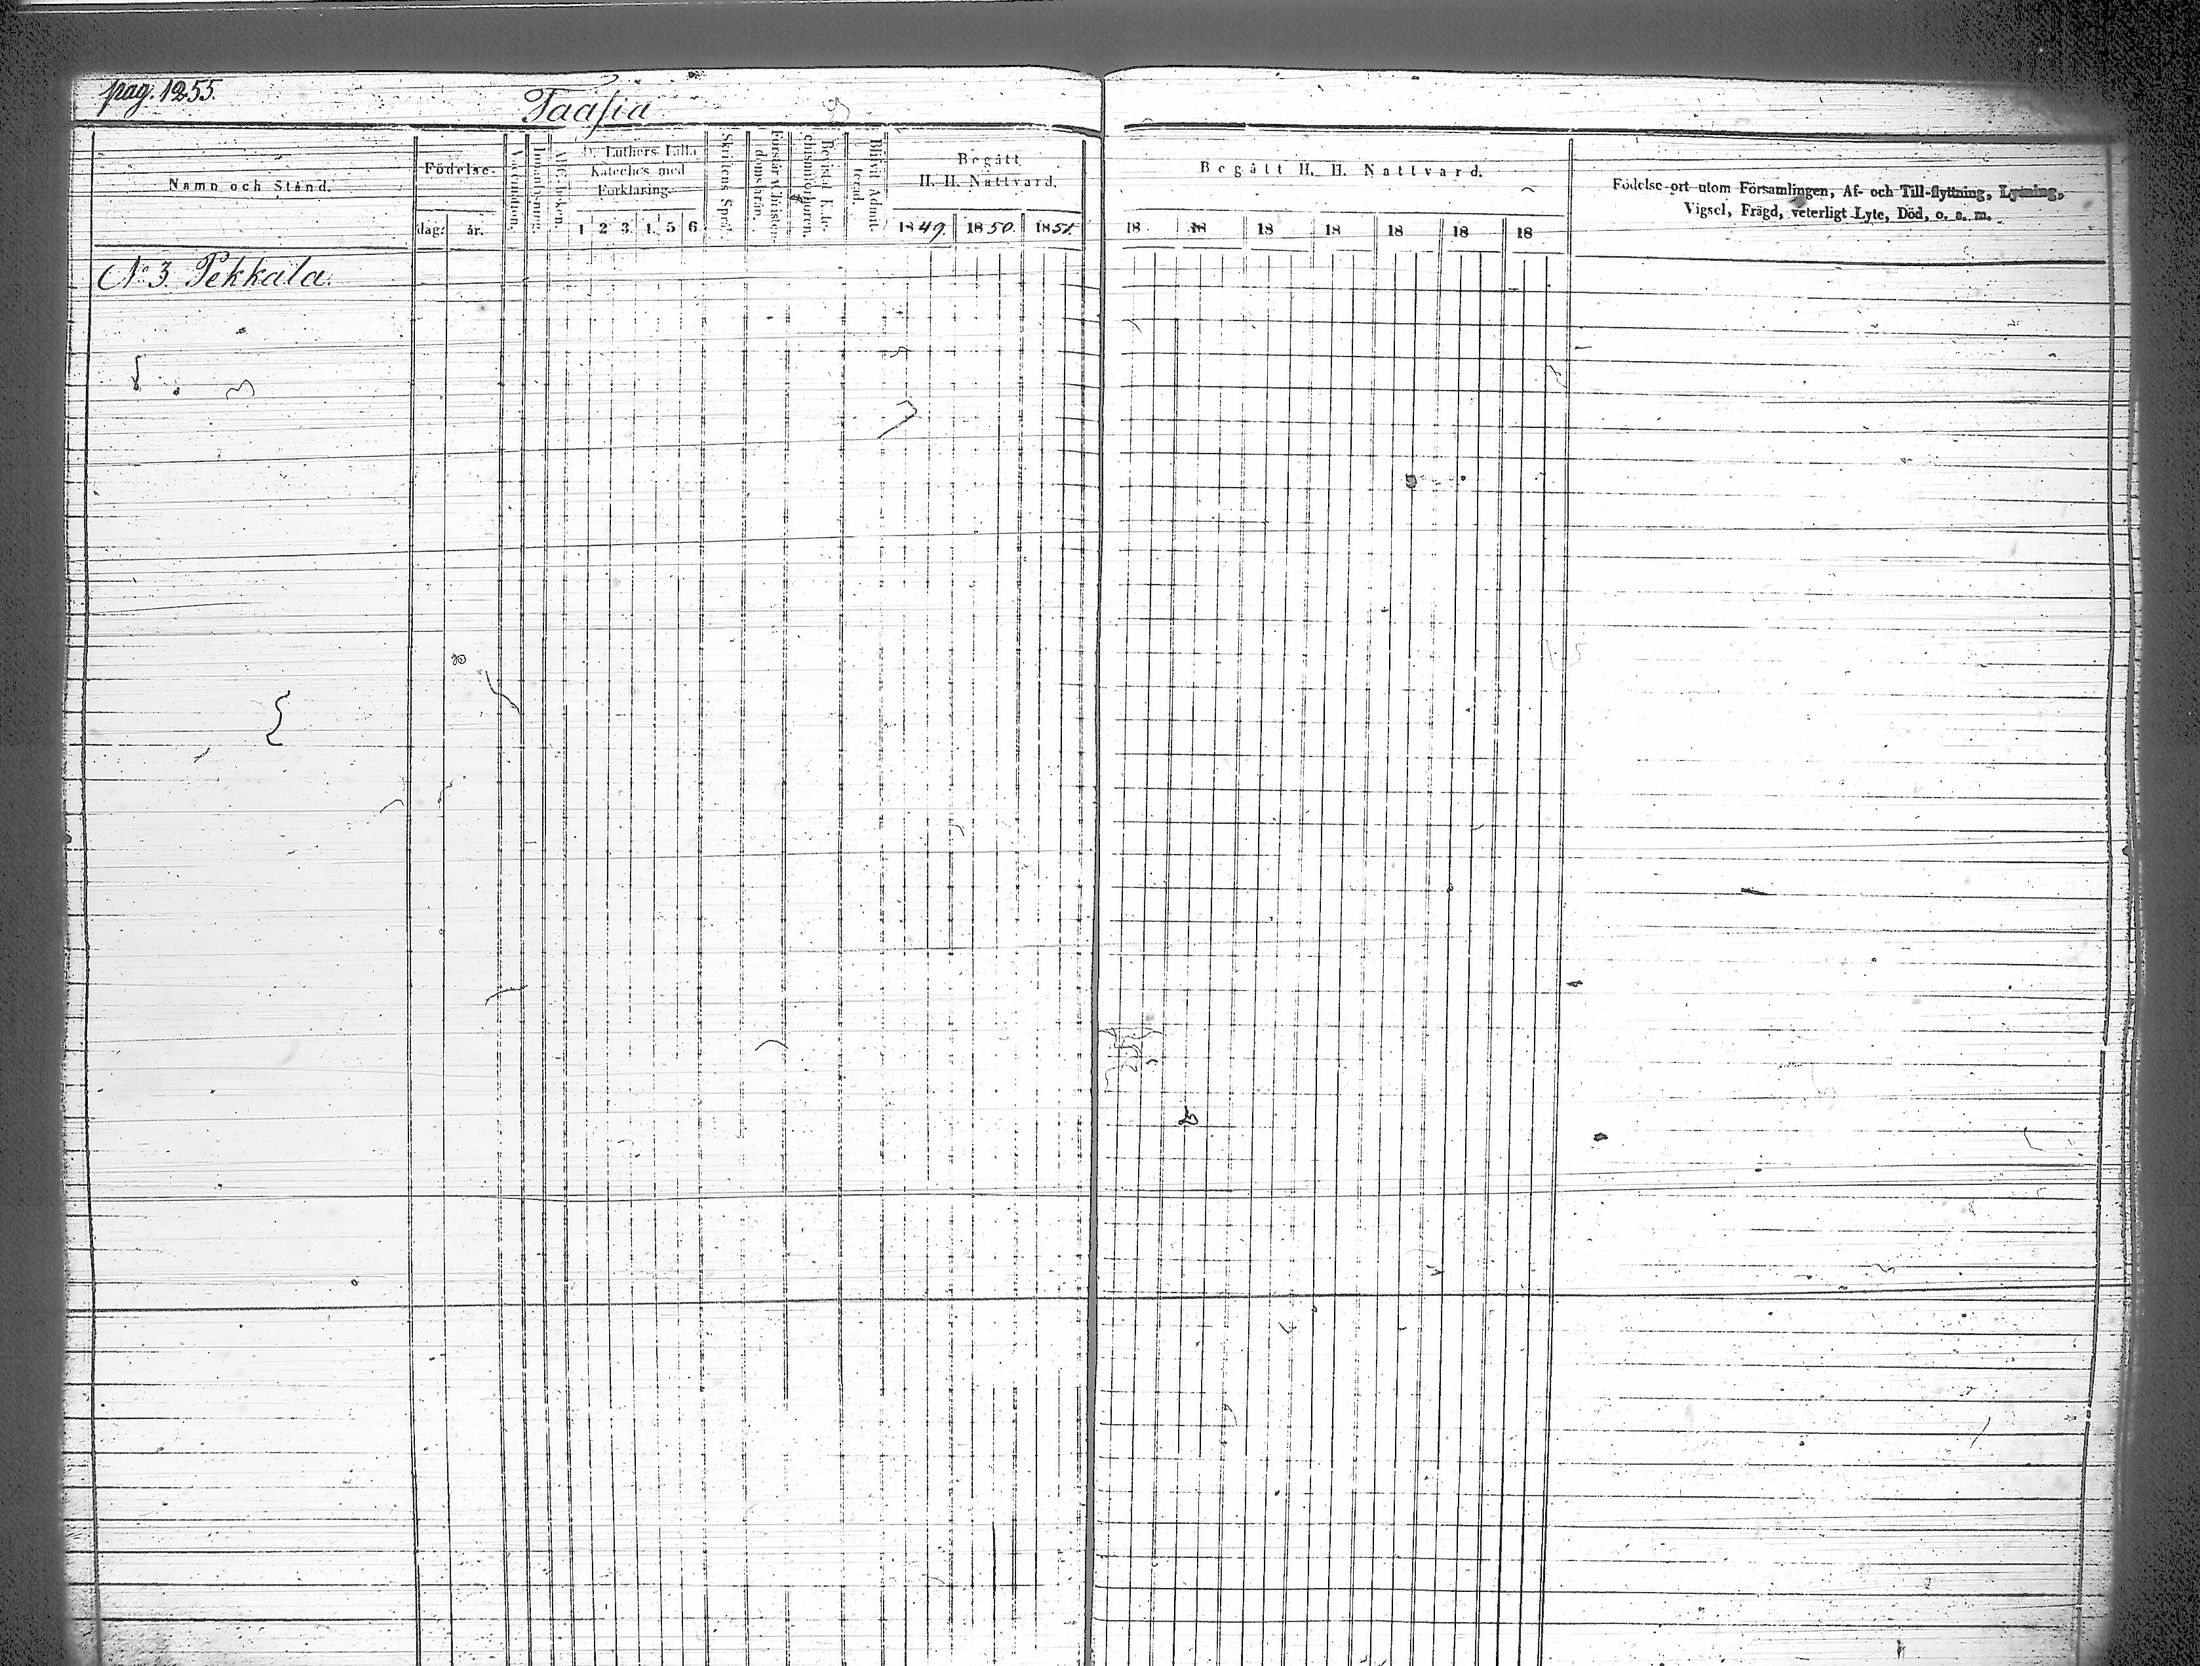 pag. 1255.
Taasia
Namn och Stånd.
Födelse-
dag.
år.
Vaccination.
Innanläsning.
Abc-boken.
D:r Luthers Lilla
Kateches med
Förklaring.
1 2 3 4 5 6
Skriftens Språk.
Förstår Christen-
domsläran.
Bevistat Kate-
chismiförhören.
Blifvit Admit-
terad.
Begått
H. H. Nattvard.
1849. 1850. 1851.
Begått H. H. Nattvard.
18 18 18 18 18 18 18
Födelse-ort utom Församlingen, Af- och Till-flyttning, Lysning,
Vigsel, Frägd, veterligt Lyte, Död, o. s. m.
No 3. Pekkala.